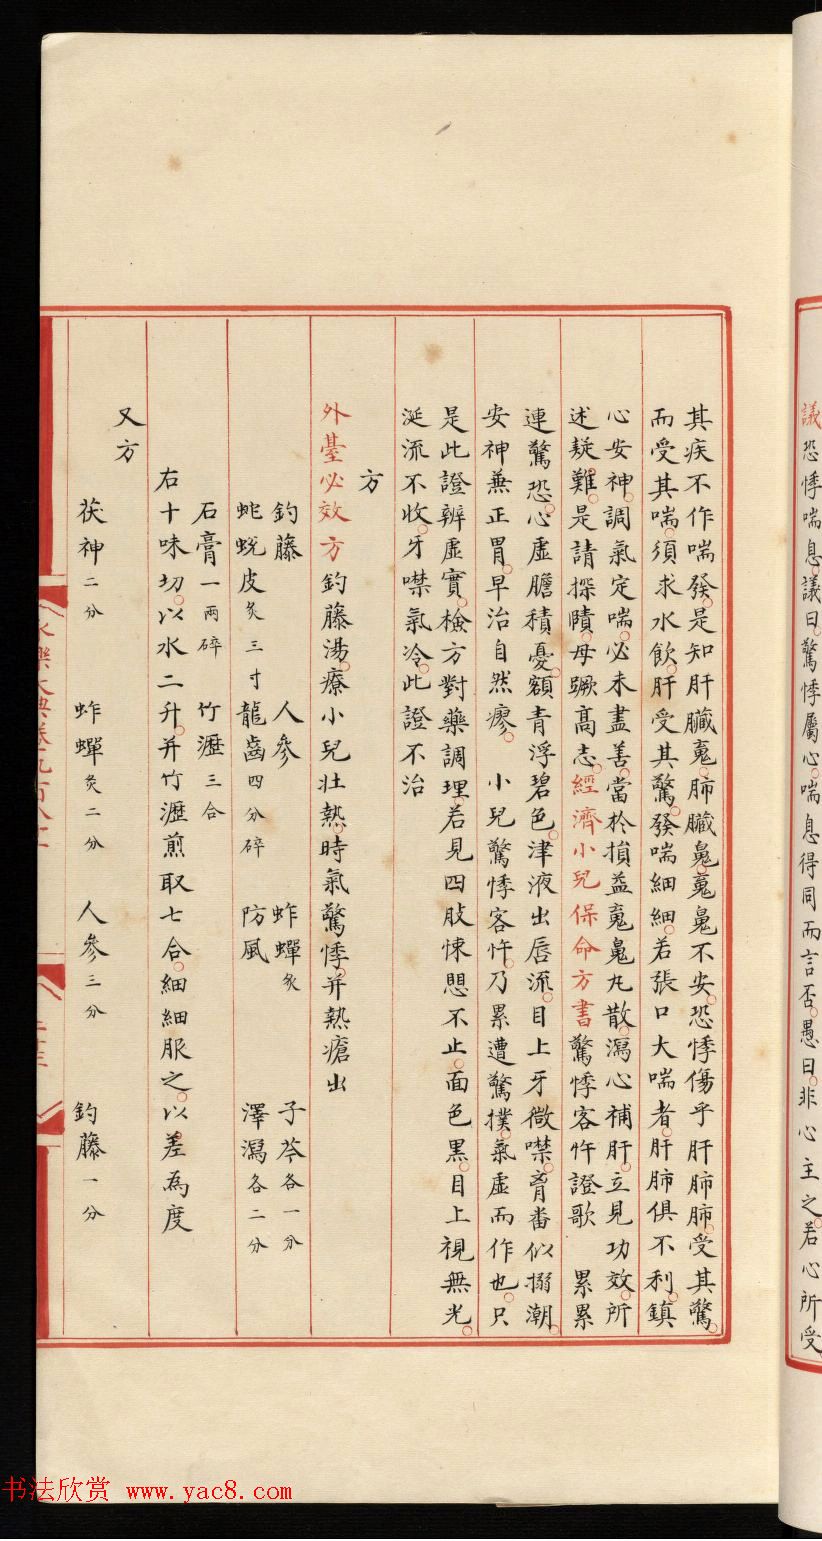 議恐悸喘息。議曰。驚悸屬心。喘息得同而言否。愚曰。非心主之。若心所受
其疾不作喘發。是知肝臟䰟。肺臟鬼。䰟鬼不安。恐悸傷乎肝肺。肺受其驚。
而受其喘。須求水飲。肝受其驚。發喘細細。若張口大喘者。肝肺俱不利。鎮
心安神。調氣定喘。必未盡善。當於損益䰟鬼丸散。瀉心補肝。立見功效。所
述疑難。是請探賾。毋蹶高志。經濟小兒保命方書驚悸客忤證歌 累累
連驚恐。心虛膽積憂。額青浮碧色。津液出唇流。目上牙微噤。胷畨似搦潮。
安神兼正胃。早治自然瘳。 小兒驚悸客忤。乃累遭驚撲。氣虛而作也。只
是此證辨虛實。檢方對藥調理。若見四肢悚㦤不止。面色黑。目上視無光。
涎流不收。牙噤氣冷。此證不治
方
外臺必效方釣藤湯。療小兒壯熱。時氣驚悸。并熱瘡出
釣藤 人參 蚱蟬炙 子芩各一分
蛇蛻皮炙三寸 龍齒四分碎 防風 澤瀉各二分
石膏一兩碎 竹瀝三合
右十味切。以水二升。并竹瀝煎取七合。細細服之。以差為度
又方
茯神二分 蚱蟬炙二分 人參三分 釣藤一分
书法欣赏 www.yac8.com